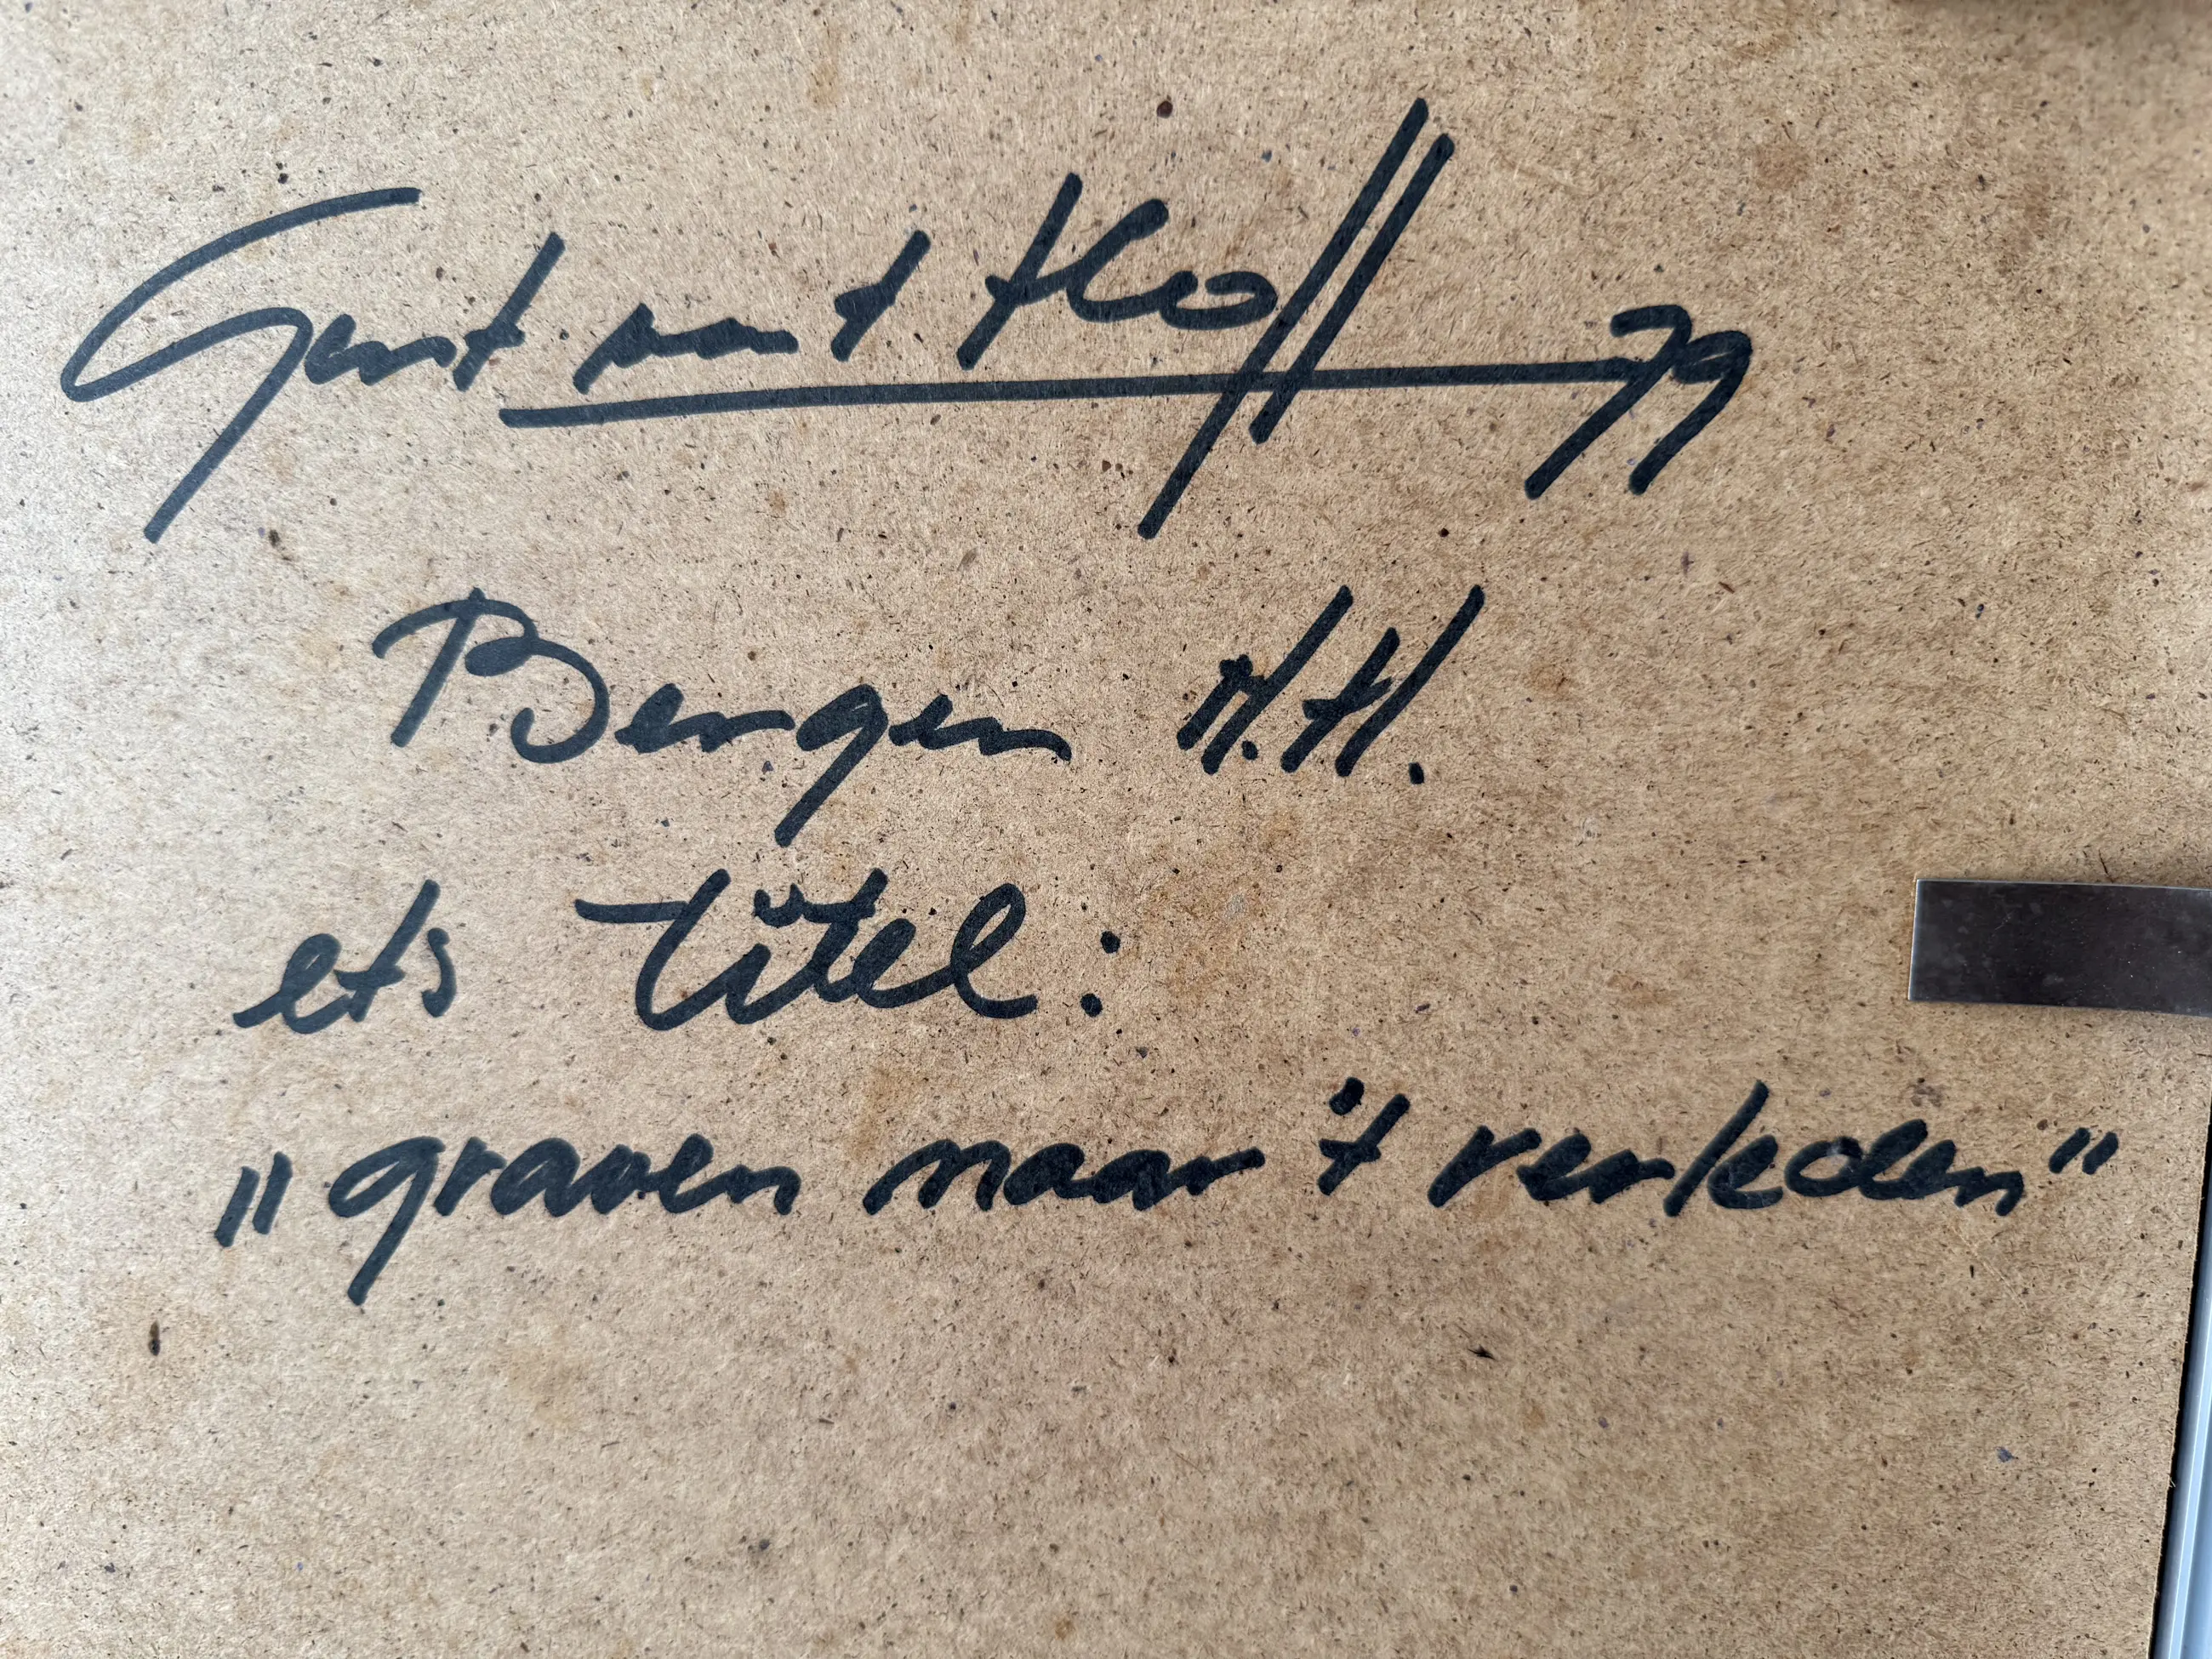 Gerrit van 't Hoff 79
Bergen N.H.
ets titel:
„graven naar 't verleden"